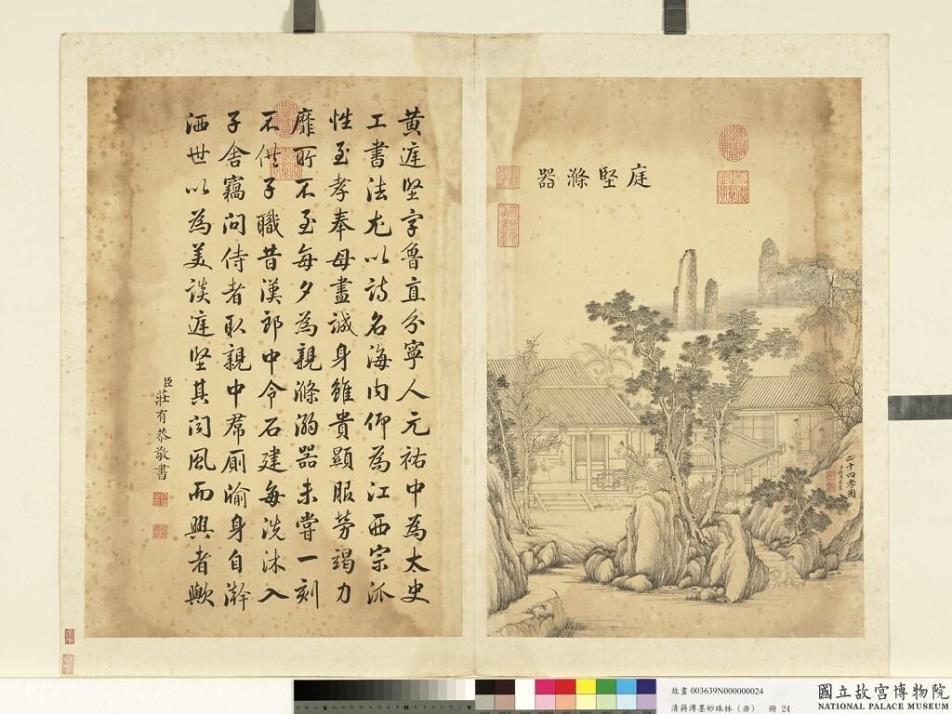 庭堅滌器
二十四孝圖
黃庭堅字魯直分寧人元祐中為太史
工書法尤以詩名海内仰為江西宗派
性至孝奉母盡誠身雖貴顯服勞竭力
靡所不至每夕為親滌溺器未嘗一刻
不供子職昔漢郎中令石建每洗沐入
子舍竊問侍者取親中帬廁牏身自澣
洒世以為美談庭堅其聞風而興者歟
臣莊有恭敬書
故畫 003639N000000024
清蔣溥墨妙珠林(丑) 冊 24
國立故宮博物院
NATIONAL PALACE MUSEUM